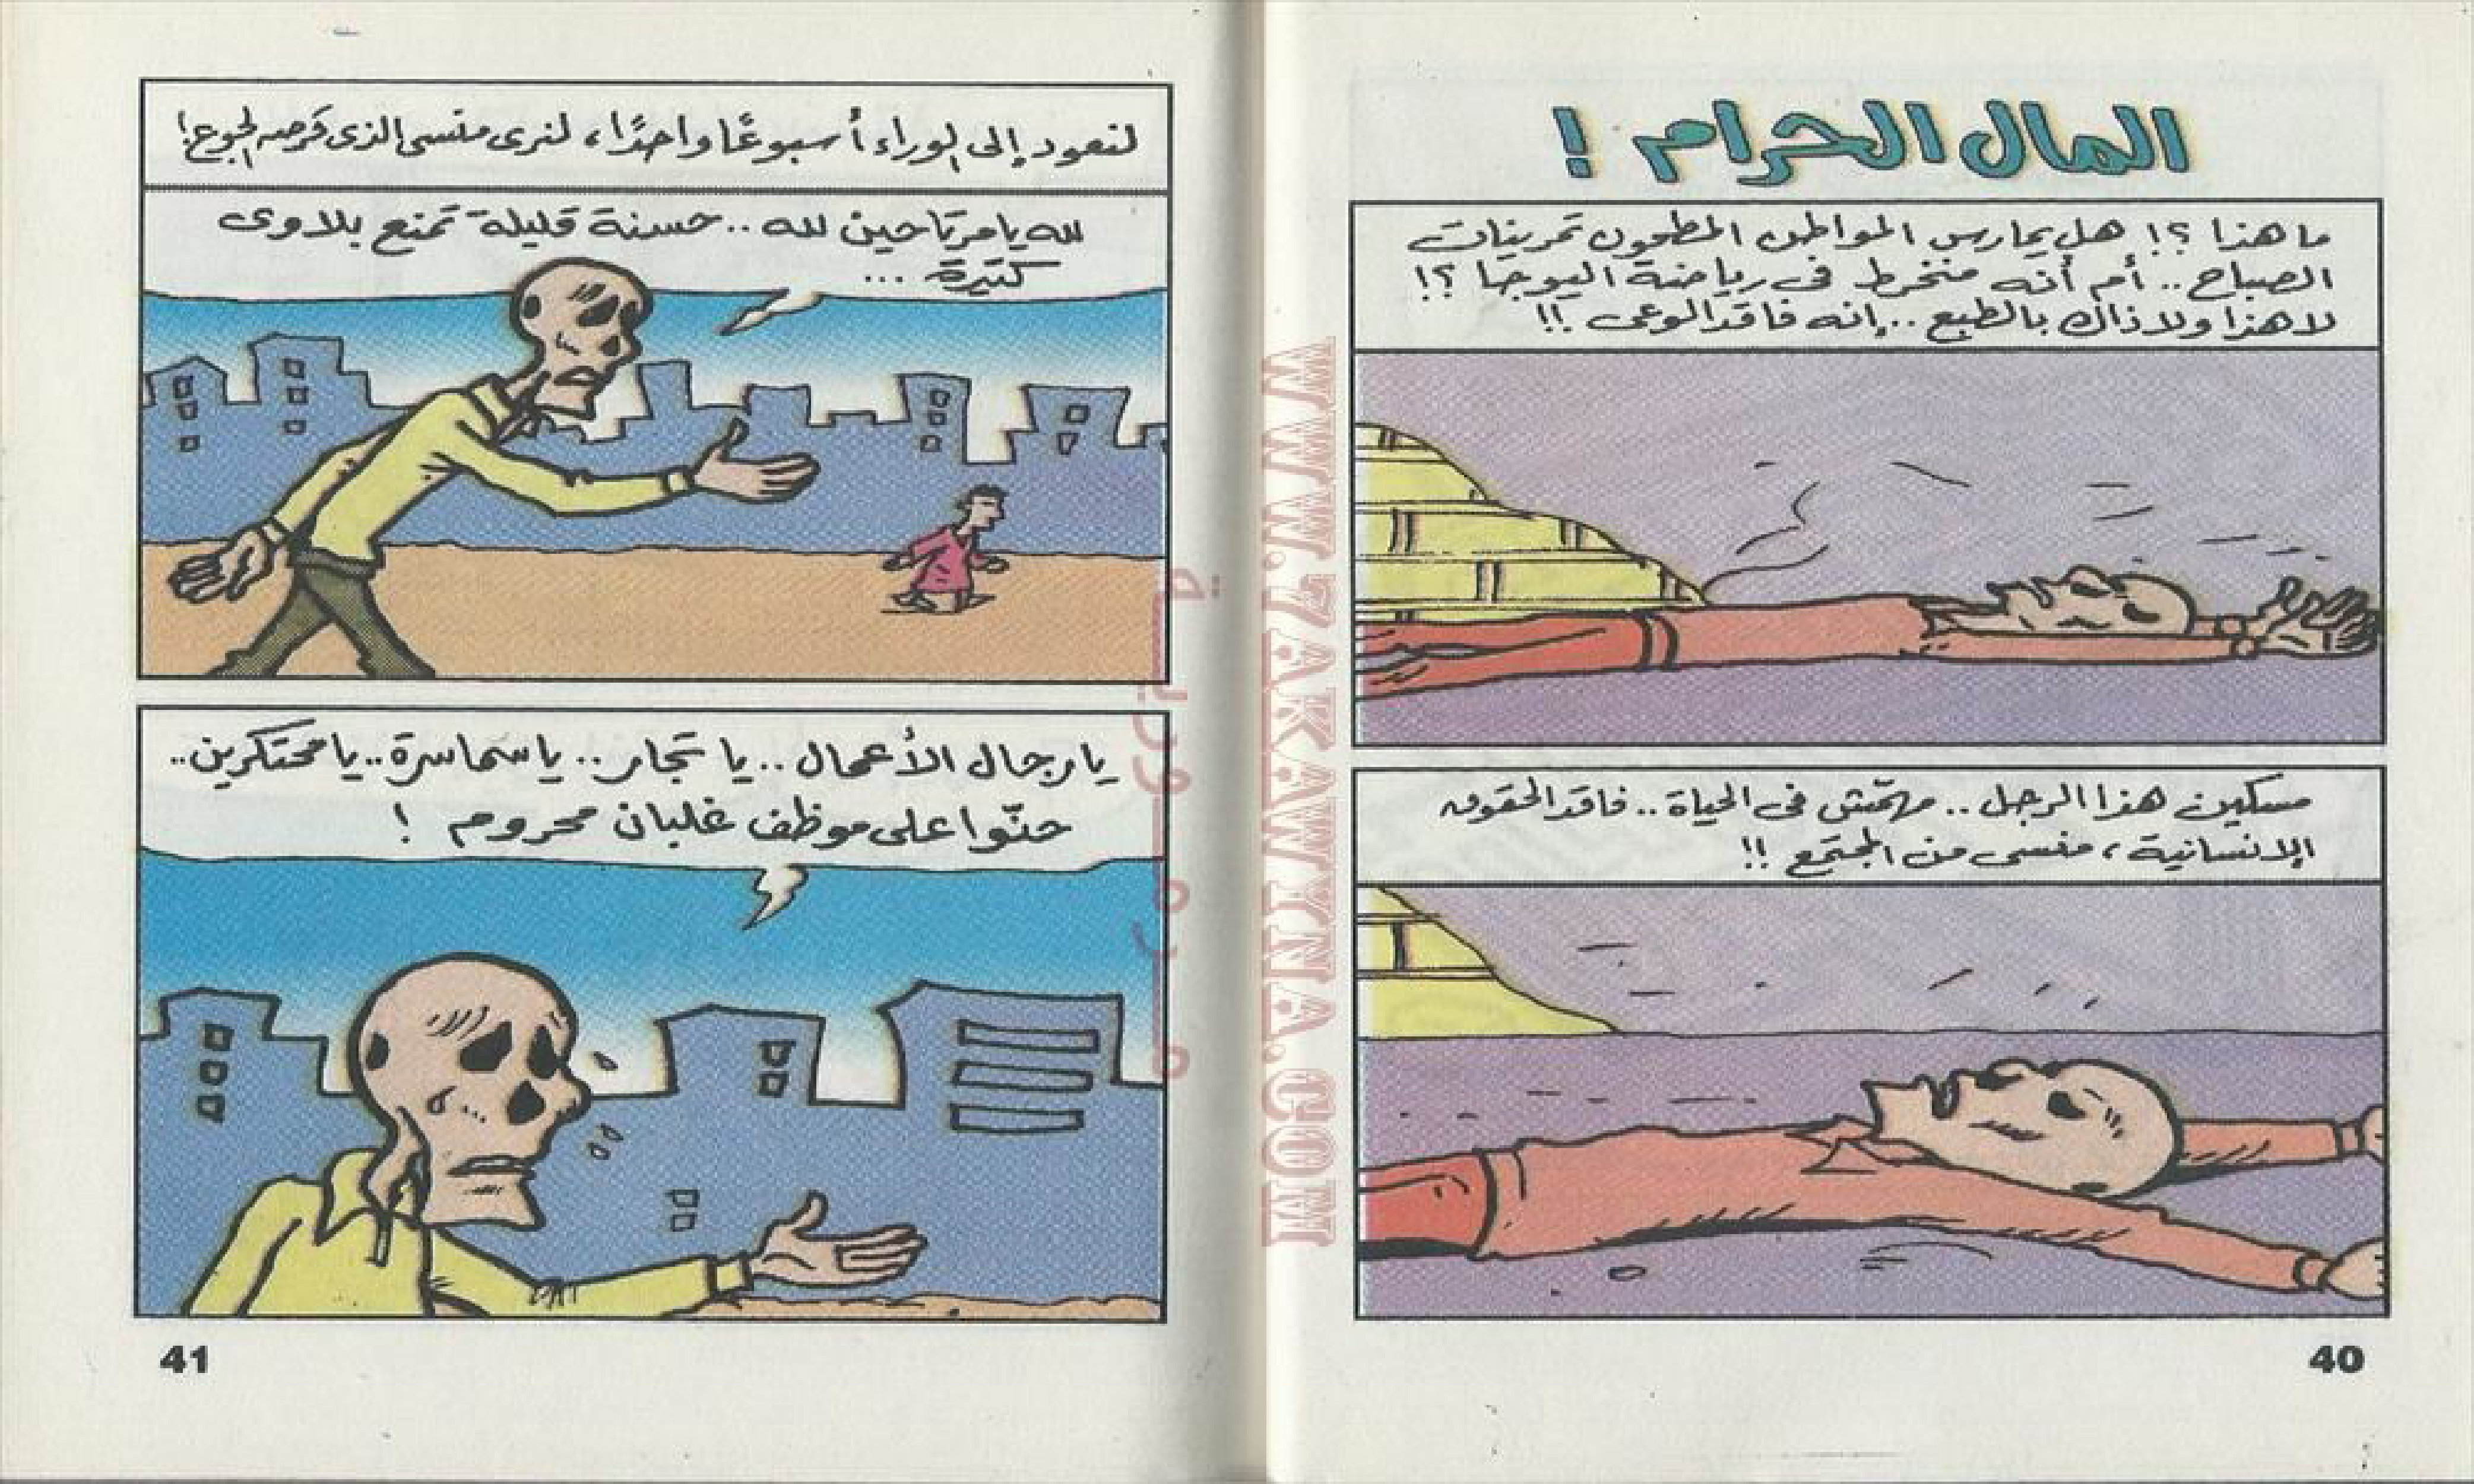 المال الحرام !
ما هذا ؟! هل يمارس المواطن المطحون تمرينات
الصباح .. أم أنه منخرط فى رياضة اليوجا ؟!
لا هذا ولا ذاك بالطبع .. إنه فاقد الوعى !!
مسكين هذا الرجل .. مهمّش فى الحياة .. فاقد الحقوق
الإنسانية ، منسى من المجتمع !!
40
لنعود إلى الوراء أسبوعًا واحدًا ، لنرى منسى الذى قرصه الجوع !
لله يا مرتاحين لله .. حسنة قليلة تمنع بلاوى
كتيرة ...
يا رجال الأعمال .. يا تجار .. يا سماسرة .. يا محتكرين ..
حنّوا على موظف غلبان محروم !
41
WWW.7AKAWYNA.COM